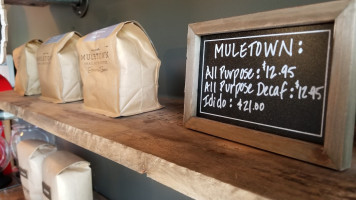 MULETOWN
MULETOWN:
All Purpose: $12.95
All Purpose Decaf: $12.95
Idido: $21.00